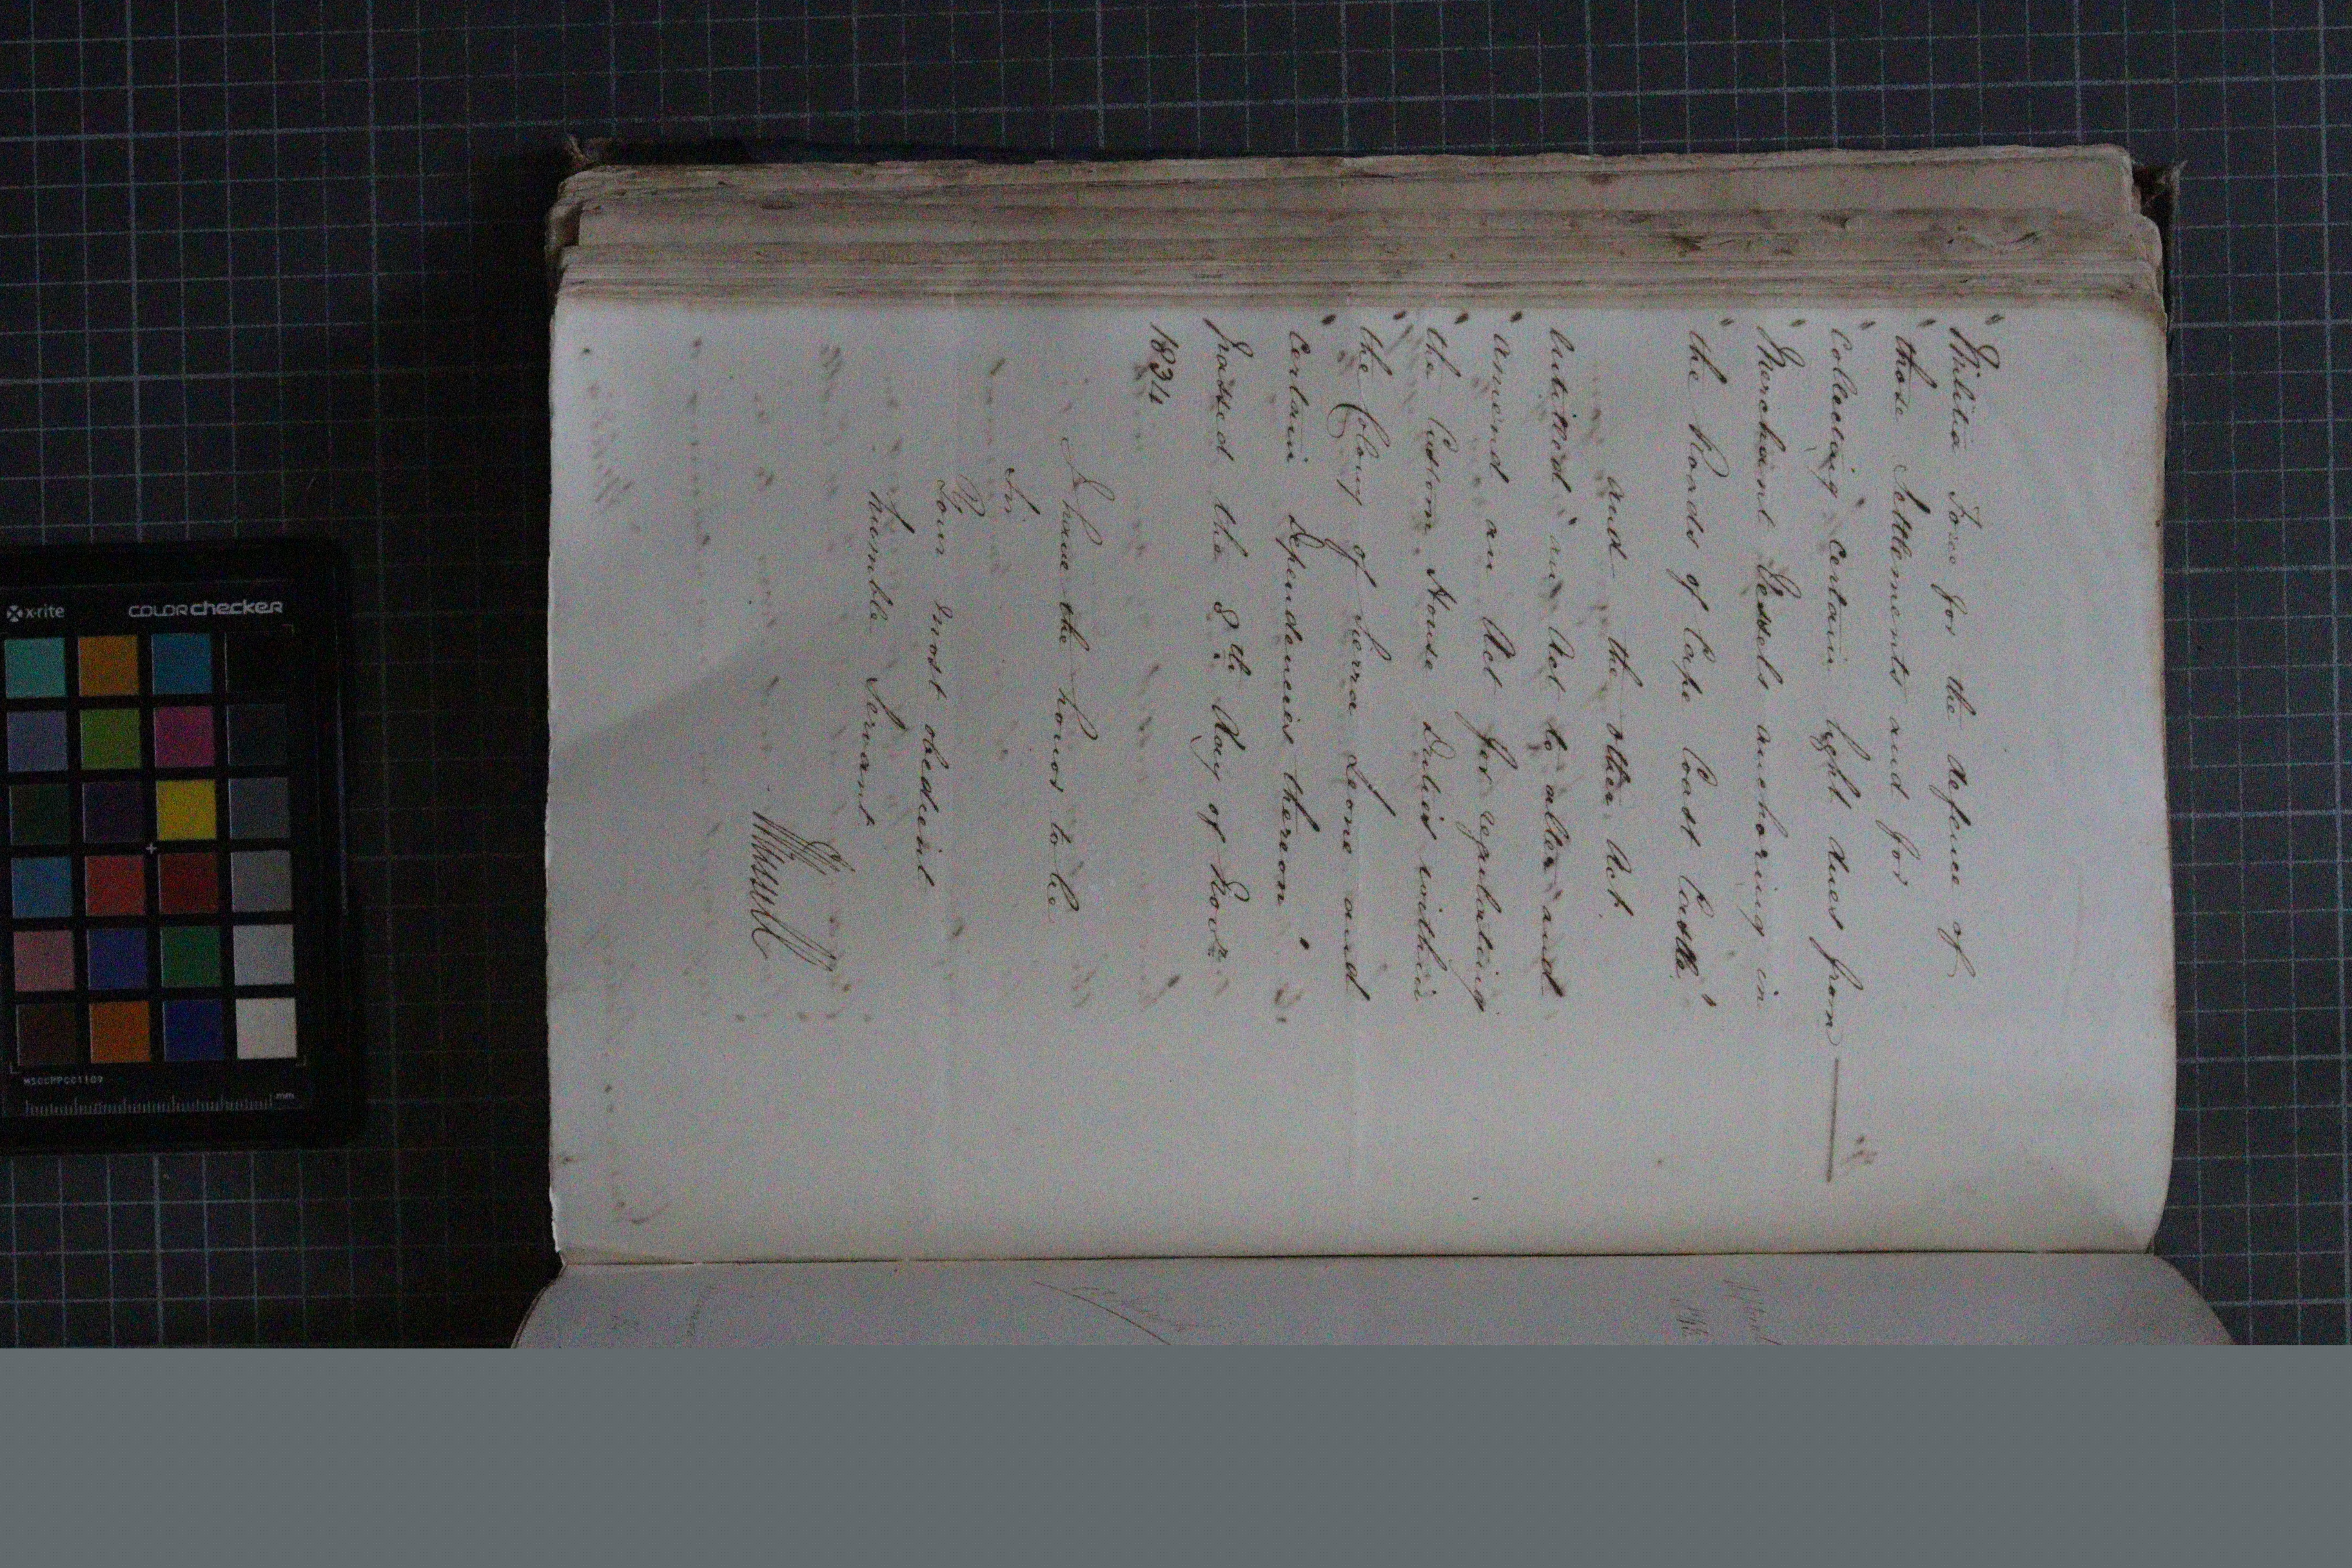 "Militia Force for the defence of
"those Settlements and for
"Collecting certain light dues from
"Merchant Vessels anchoring in
"the Roads of Cape Coast Castle"
and the other Act.
Intitled "an Act to alter and
"amend an Act for regulating
"the Custom House Duties within
"the Colony of Sierra Leone and
"Certain Dependencies thereon"
passed the 8th day of Novr
1834
I have the honor to be
Sir
Your most obedient
humble Servant
x·rite COLORchecker
MSCCPPCC1109
mm